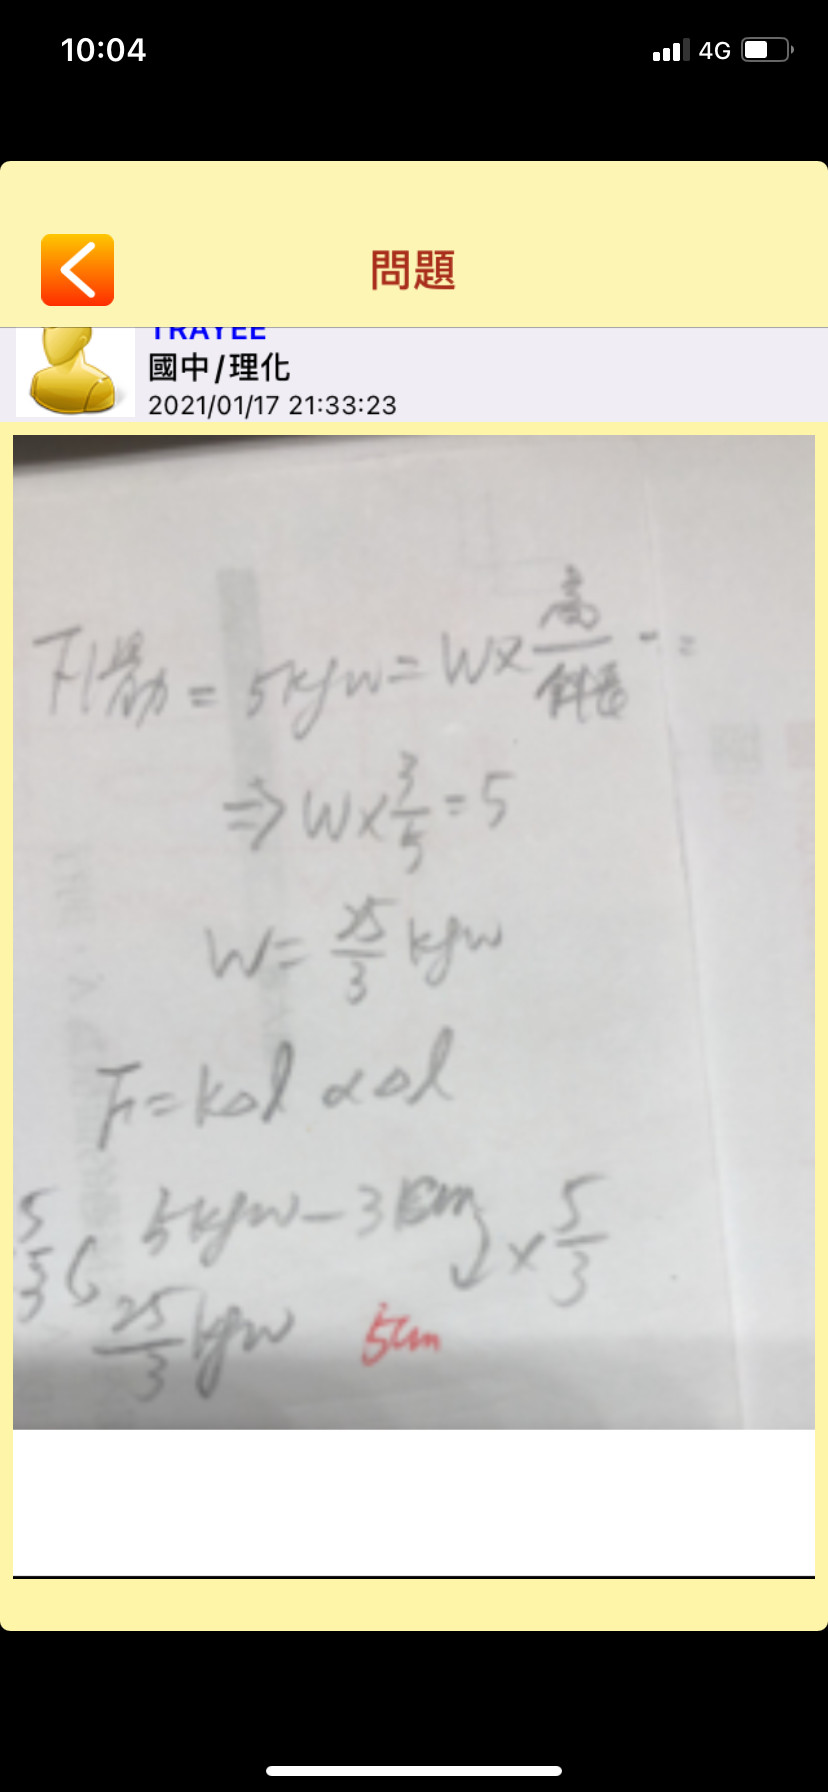 10:04
4G
問題
TRAYEE
國中/理化
2021/01/17 21:33:23
下滑 = 5kgw = W× 高/斜長 - =
⇒ W× 3/5 = 5
W = 25/3 kgw
F = kΔl ∝ Δl
5/3 ( 5kgw — 3cm ) × 5/3
25/3 kgw 5cm